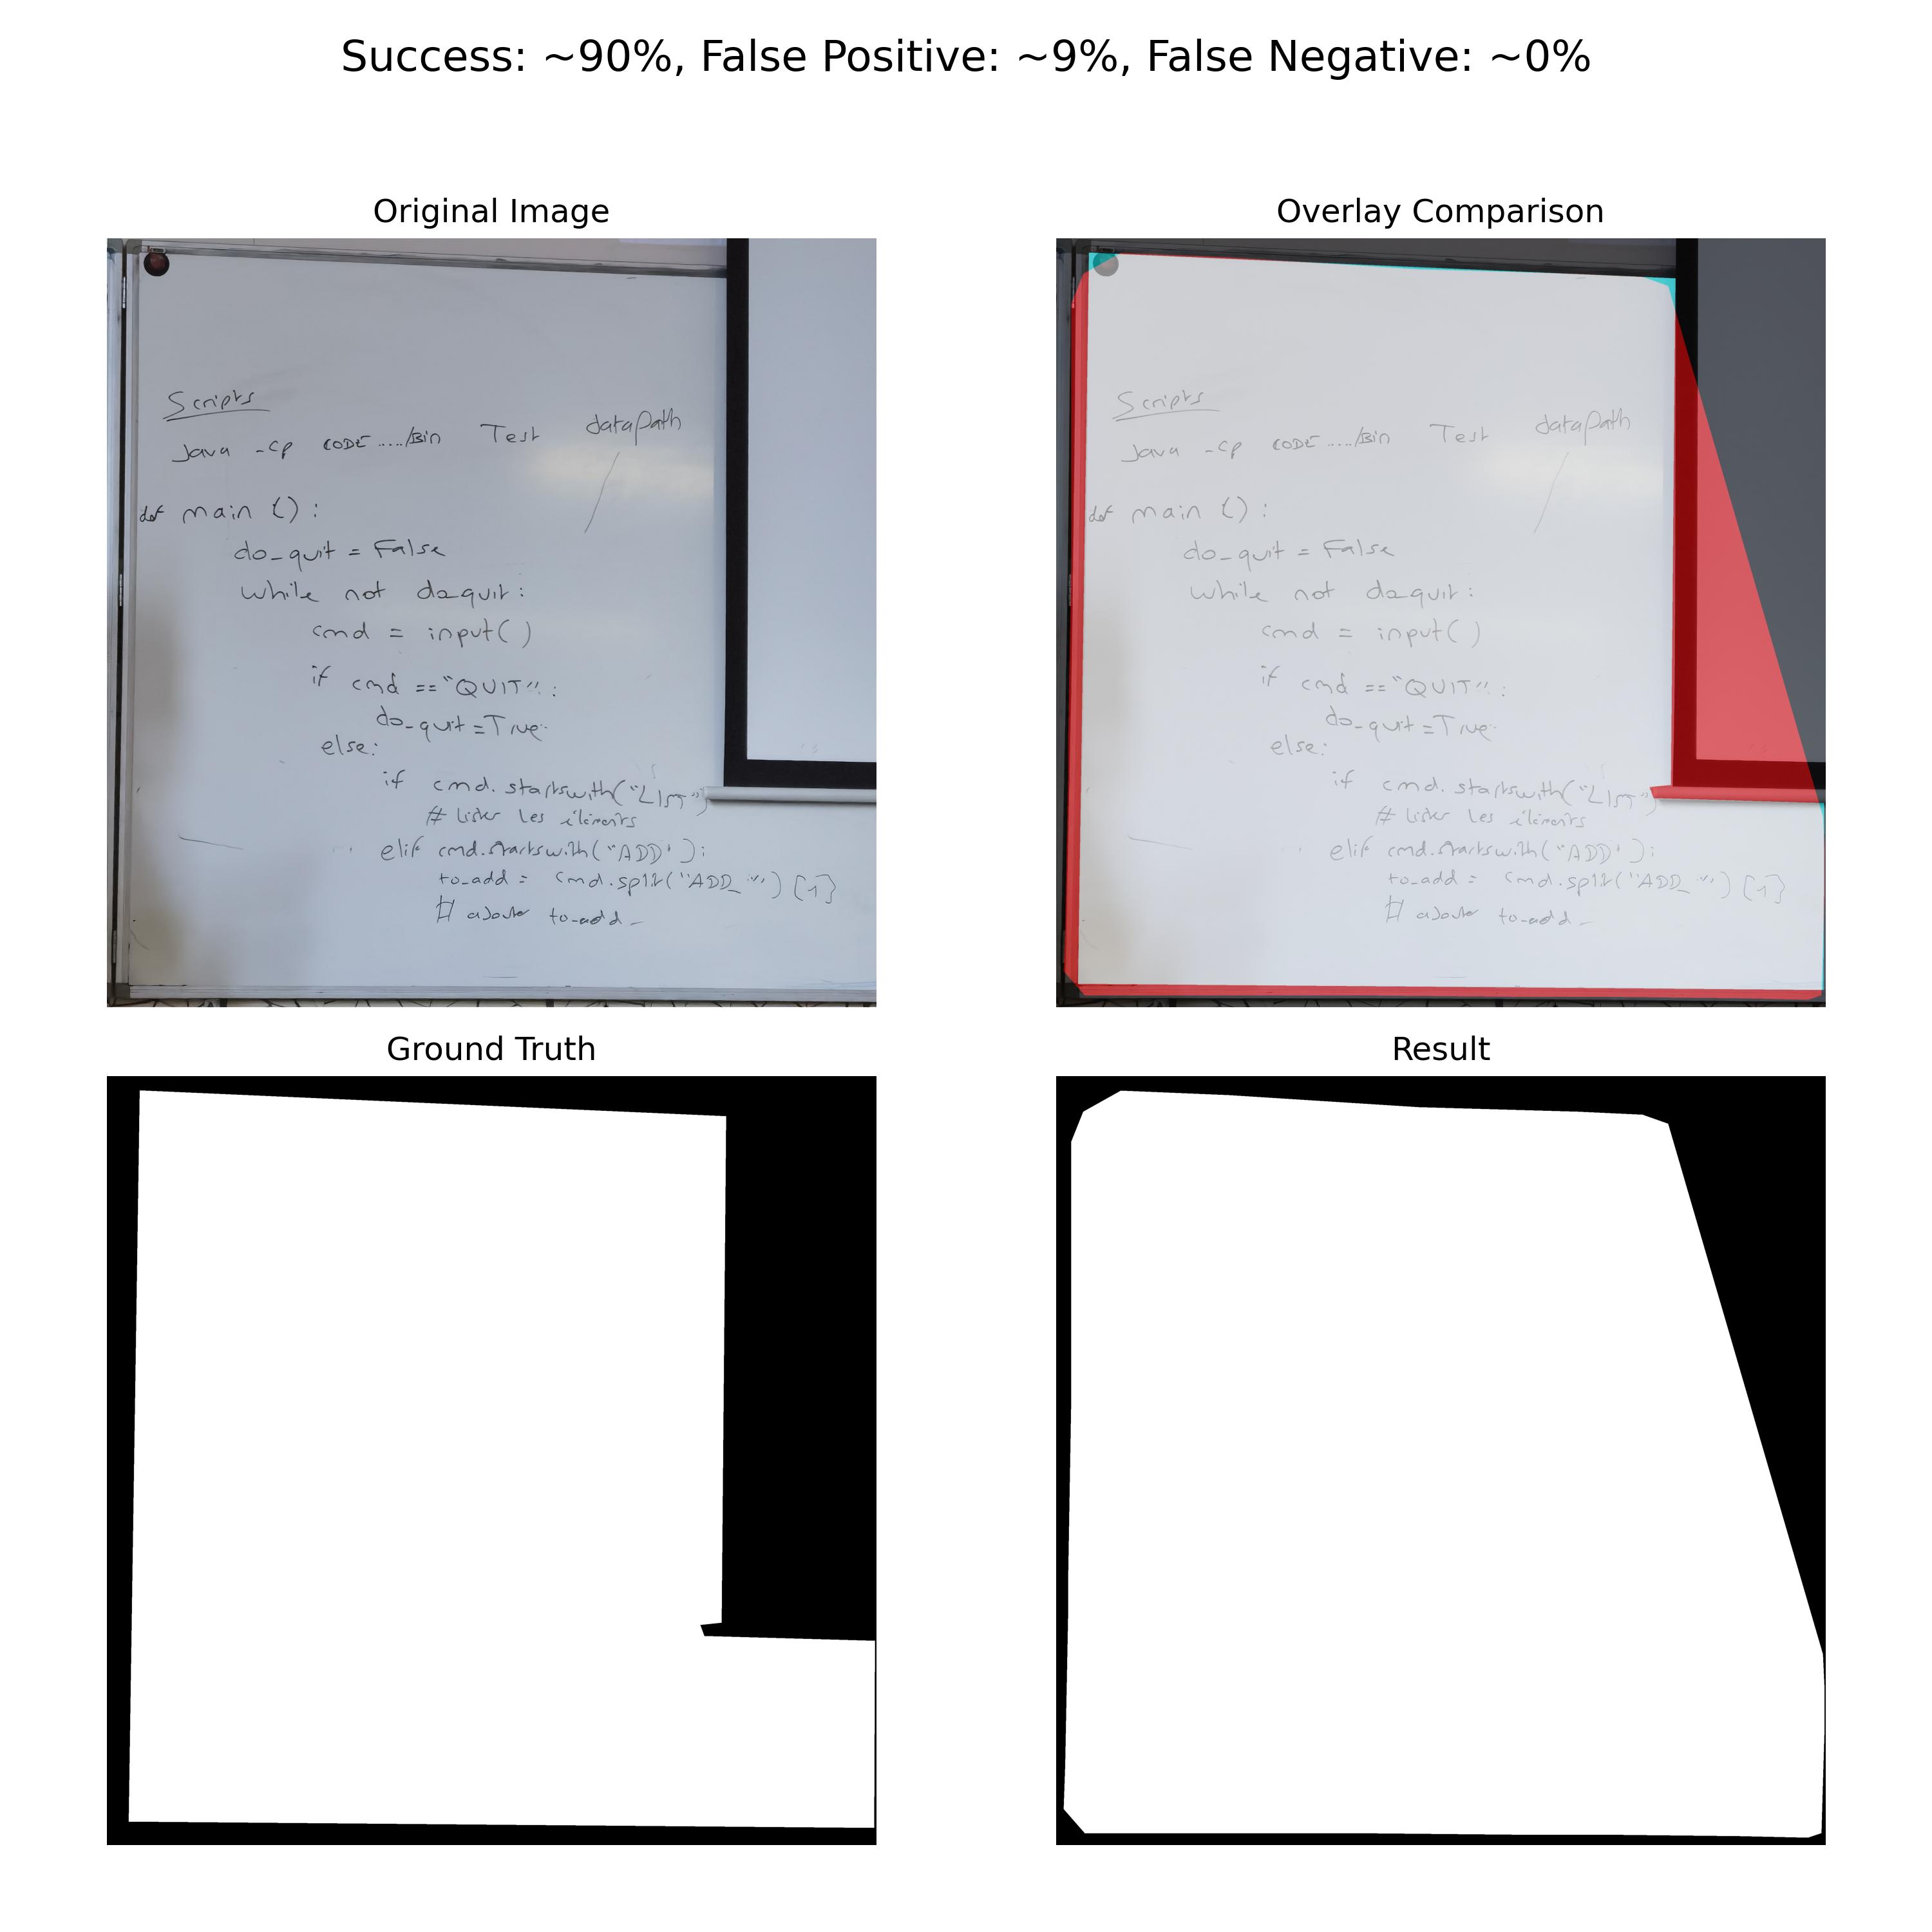 Success: ~90%, False Positive: ~9%, False Negative: ~0%
Original Image
Scripts
Java -cp CODE...../Bin Test dataPath
def main ():
do_quit = False
while not do_quit:
cmd = input()
if cmd =="QUIT":
do_quit=True
else:
if cmd. startswith("LIST")
# lister les éléments
elif cmd.startswith("ADD"):
to_add = cmd.split("ADD_") [1]
# ajouter to_add_
Overlay Comparison
Scripts
Java -cp CODE...../Bin Test dataPath
def main ():
do_quit = False
while not do_quit:
cmd = input()
if cmd =="QUIT":
do_quit=True
else:
if cmd. startswith("LIST")
# lister les éléments
elif cmd.startswith("ADD"):
to_add = cmd.split("ADD_") [1]
# ajouter to_add_
Ground Truth
Result